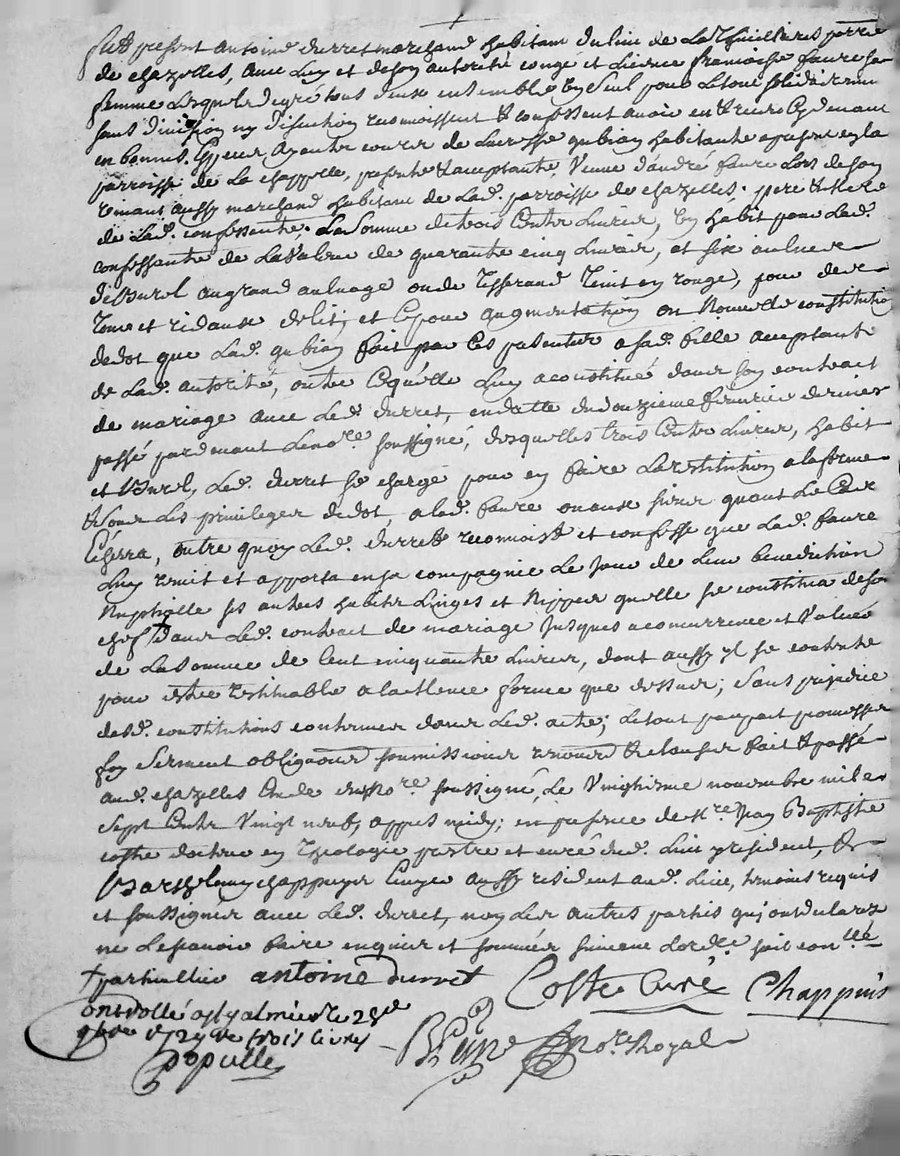 present antoine durret marchand habitant du lieu de parrse
de chazelles, avec luy et de son autorité congé et licence françoise faure sa
femme lesquels de gré tous deux ensemble seul pour le tout solidairement
sans division ny discution reconnoissent & confessent avoir eu & receu cy devant
en bonnes especes ayants cours de gubian habitante apresent en la
parroisse de la chappelle, presente & acceptante, veuve d'andré faure lors de son
vivant aussy marchand habitant de lad. parroisse de chazelles, pere &
de lad. confessante. la somme de trois cents livres, un habit pour lad.
confessante de la valeur de quarante cinq livres, et six aulnes
de burel au grand aulnage ou de tisserand teint en rouge, pour de
et ridaux de lit; et ce pour augmentation ou nouvelle constitution
de dot que lad. gubian fait par ces presentes a sad. fille acceptante
de lad. autorité, outre ce qu'elle luy a constitué dans son contract
de mariage avec led. durret, en datte du douzieme fevrier dernier
passé pardevant le nore soussigné, desquelles trois cents livres, habit
et burel, led. durret se charge pour en faire la restitution a la forme
& sous les privileges de dot, a lad. faure ou aux siens quant le cas
echerra, outre quoy led. durret reconnoist et confesse que lad. faure
luy remit et apporta en sa compagnie le jour de leur benediction
nuptialle ses autres habits linges et nippes qu'elle se constitua de son
chef † dans led. contract de mariage jusques a concurrence et valeur
de la somme de cent cinquante livres, dont aussy il se contente
pour estre restituable a la mesme forme que dessus; sans prejudice
desd. constitutions contenues dans led. acte; le tout par pact promesses
foy serment obligaons soumissions renonons & clauses fait & passé
aud. chazelles etude dud nore soussigné, le vingtieme novembre mil
sept cents vingt neuf, appres midy; en presence de mre Jean Baptiste
coste docteur en theologie prestre et curé dud. lieu y resident, &
Barthelemy chappuys aussy resident aud. lieu, temoins requis
et soussignes avec led. durret, non les autres parties qui ont declarés
ne le sçavoir faire enquises et sommées suivant lordce soit con lle
† particullier antoine durret Coste Curé Chappuis
controllé a st galmier le 28e
9bre 1729 Re trois livres
Nore Royal
populle